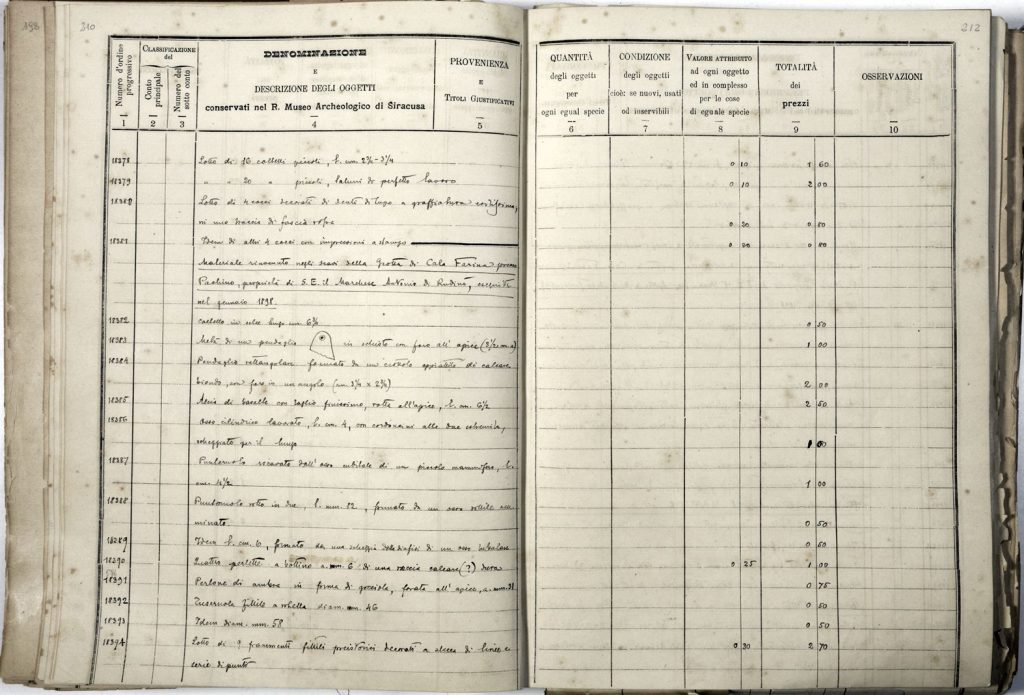 198
210
Numero d'ordine progressivo
CLASSIFICAZIONE del
Conto principale
Numero del sotto conto
DENOMINAZIONE
E
DESCRIZIONE DEGLI OGGETTI
conservati nel R. Museo Archeologico di Siracusa
PROVENIENZA
E
TITOLI GIUSTIFICATIVI
1 2 3 4 5
18378 Lotto di 16 coltelli piccoli, l. mm. 2¾-3¼
18379 " " 20 " piccoli, taluni di perfetto lavoro
18380 Lotto di 4 cocci decorati di denti di lupo a graffiatura
in uno traccia di fascia
18381 Idem di altri 4 cocci con impressioni a stampo
Materiale rinvenuto negli scavi della Grotta di Cala Farina presso
Pachino, proprietà di S. E. il Marchese Antonio di Rudinì, eseguiti
nel gennaio 1898.
18382 coltello in selce lungo mm 6¾
18383 Metà di un pendaglio in schisto con foro all' apice
18384 Pendaglio rettangolare formato da un ciottolo appiattito di calcare
biondo, con foro in un angolo (mm 3¼ x 2¾)
18385 Ascia di basalte con taglio finissimo, rotta all'apice, l. cm. 6½
18386 Osso cilindrico lavorato, l. cm. 4, con cordoncini alle due estremità,
scheggiato per il lungo
18387 Punteruolo ricavato dall' osso cubitale di un piccolo mammifero, l.
cm. 4½
18388 Punteruolo rotto in due, l. mm. 82, formato da un osso sottile
minato
18389 Idem l. cm. 6, formato da una scheggia della diafisi di un osso
18390 Quattro perlette a bottino a. mm. 6 di una roccia calcare (?) dura
18391 Perlone di ambra in forma di gocciola, forato all' apice, a. mm. 31
18392 Fuseruola fittile a rotella diam. mm. 46
18393 Idem diam. mm. 58
18394 Lotto di 9 frammenti fittili preistorici decorati a stecca di linee e
serie di punti
212
QUANTITÀ
degli oggetti
per
ogni egual specie
CONDIZIONE
degli oggetti
cioè: se nuovi, usati
od inservibili
VALORE ATTRIBUITO
ad ogni oggetto
ed in complesso
per le cose
di eguale specie
TOTALITÀ
dei
prezzi
OSSERVAZIONI
6 7 8 9 10
0 10 1 60
0 10 2 00
0 20 0 80
0 20 0 80
0 50
1 00
2 00
2 50
1 00
1 00
0 50
0 50
0 25 1 00
0 75
0 50
0 50
0 30 2 70